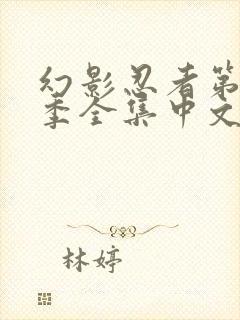 幻影忍者第
季全集中文
林婷